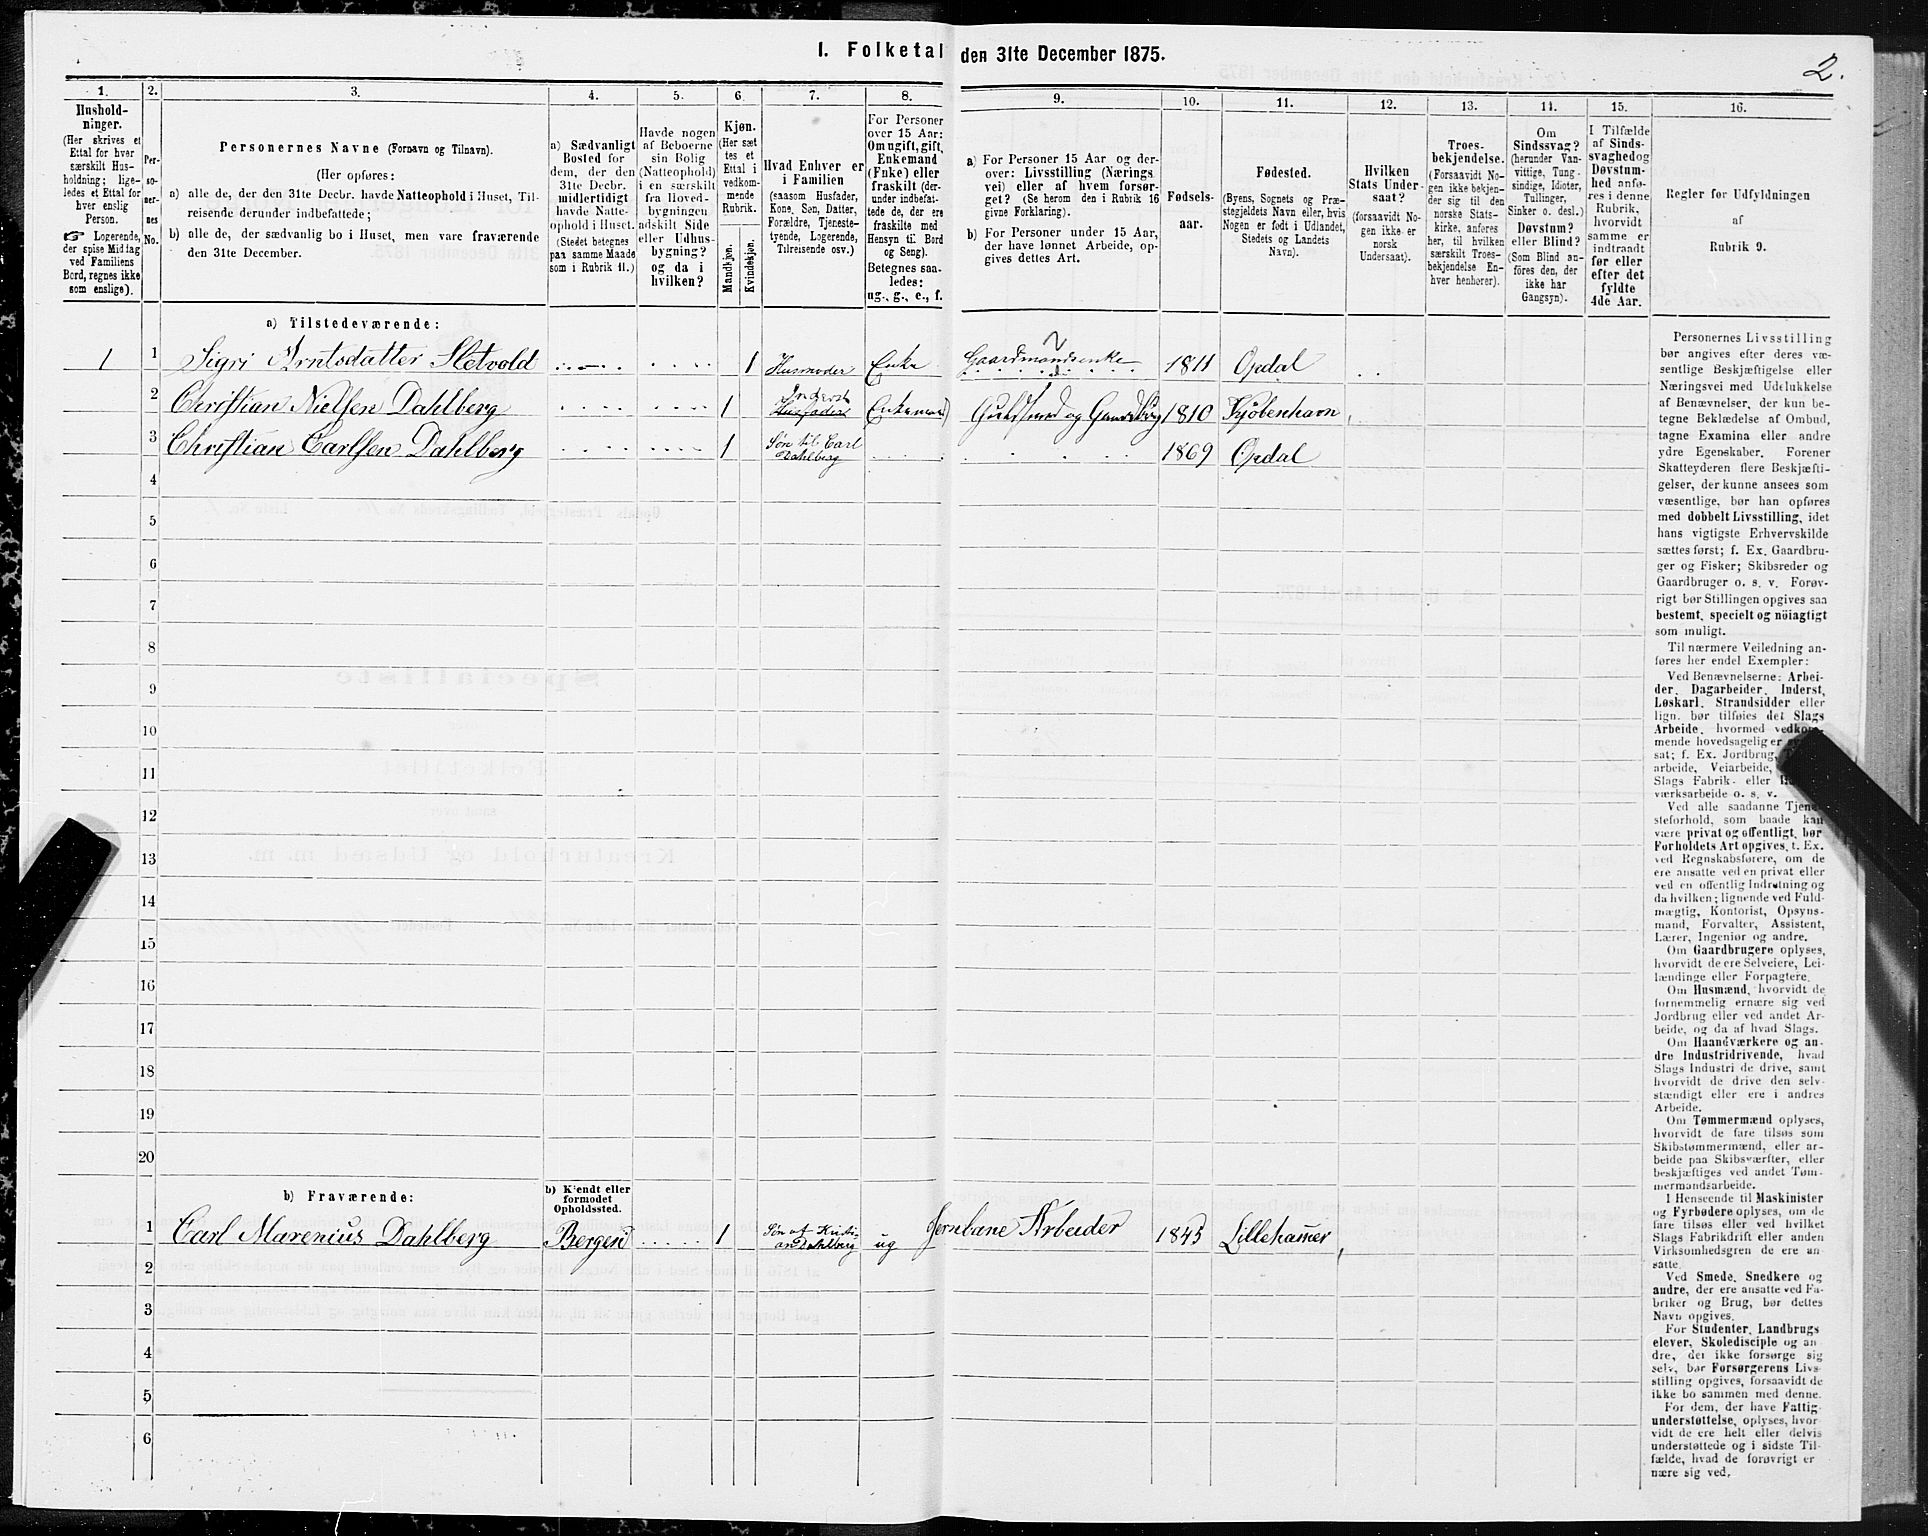 I. Folketal den 31te December 1875.
2.
1.
Hushold-
ninger.
(Her skrives et
Ettal for hver
særskilt Hus-
holdning; lige-
ledes et Ettal for
hver enslig
Person.
☞ Logerende,
der spise Middag
ved Familiens
Bord, regnes ikke
som enslige).
2.
Per-
so-
ner-
nes
No.
3.
Personernes Navne (Fornavn og Tilnavn).
(Her opføres:
a) alle de, der den 31te Decbr. havde Natteophold i Huset, Til-
reisende derunder indbefattede;
b) alle de, der sædvanlig bo i Huset, men vare fraværende
den 31te December.
4.
a) Sædvanligt
Bosted for
dem, der den
31te Decbr.
midlertidigt
havde Natte-
ophold i Huset.
(Stedet betegnes
paa samme Maade
som i Rubrik 11.)
5.
Havde nogen
af Beboerne
sin Bolig
(Natteophold)
i en særskilt
fra Hoved-
bygningen
adskilt Side
eller Udhus-
bygning?
og da i
hvilken?
6.
Kjøn.
(Her sæt
tes et
Ettal i
vedkom-
mende
Rubrik.
Mandkjøn.
Kvindekjøn.
7.
Hvad Enhver er
i Familien
(saasom Husfader,
Kone, Søn, Datter,
Forældre, Tjeneste-
tyende, Logerende,
Tilreisende osv.)
8.
For Personer
over 15 Aar:
Om ugift, gift,
Enkemand
(Enke) eller
fraskilt (der-
under indbefat-
tede de, der ere
fraskilte med
Hensyn til Bord
og Seng).
Betegnes saa-
ledes:
ug., g., e., f.
9.
a) For Personer 15 Aar og der-
over: Livsstilling (Nærings
vei) eller af hvem forsør-
get? (Se herom den i Rubrik 16
givne Forklaring).
b) For Personer under 15 Aar,
der have lønnet Arbeide, op-
gives dettes Art.
10.
Fødsels-
aar.
11.
Fødested.
(Byens, Sognets og Præ-
stegjeldets Navn eller, hvis
Nogen er født i Udlandet,
Stedets og Landets
Navn).
12.
Hvilken
Stats Under-
saat?
(forsaavidt No-
gen ikke er
norsk
Undersaat).
13.
Troes-
bekjendelse.
(Forsaavidt No-
gen ikke bekjen-
der sig til den
norske Stats-
kirke, anføres
her, til hvilken
særskilt Troes-
bekjendelse En-
hver henhører).
14.
Om
Sindssvag?
(herunder Van-
vittige, Tung-
sindige, Idioter,
Tullinger,
Sinker o. desl.)
Døvstum?
eller Blind?
(Som Blind an-
føres den, der
ikke har
Gangsyn).
15.
I Tilfælde
af Sinds-
svaghed og
Døvstum-
hed anfø-
res i denne
Rubrik,
hvorvidt
samme er
indtraadt
før eller
efter det
fyldte
4de Aar.
16.
Regler for Udfyldningen
af
Rubrik 9.
a) Tilstedeværende:
1 1 Sigri Arntsdatter Sletvold 1 Husmoder Enke Gaardmandsenke 1811 Opdal
2 Christian Nielsen Dahlberg 1 Husfader Inderst Enkemand 1810 Kjøbenhavn
3 Christian Carlsen Dahlberg 1 Søn til Carl Dahlberg 1869 Opdal
4
5
6
7
8
9
10
11
12
13
14
15
16
17
18
19
20
b) Fraværende:
b) Kjendt eller
formodet
Opholdssted.
1 Carl Marenius Dahlberg Bergen 1 Søn af Kristi-
an Dahlberg ug Jernbane Arbeider 1845 Lillehamer
2
3
4
5
6
Personernes Livsstilling
bør angives efter deres væ-
sentlige Beskjæftigelse eller
Næringsvei med Udelukkelse
af Benævnelser, der kun be-
tegne Beklædelse af Ombud,
tagne Examina eller andre
ydre Egenskaber. Forener
Skatteyderen flere Beskjæfti-
gelser, der kunne ansees som
væsentlige, bør han opføres
med dobbelt Livsstilling, idet
hans vigtigste Erhvervskilde
sættes først; f. Ex. Gaardbru-
ger og Fisker; Skibsreder og
Gaardbruger o. s. v. Forøv-
rigt bør Stillingen opgives saa
bestemt, specielt og nöiagtigt
som muligt.
Til nærmere Veiledning an-
føres her endel Exempler:
Ved Benævnelserne: Arbei-
der, Dagarbeider, Inderst,
Løskarl, Strandsidder eller
lign. bør tilføies det Slags
Arbeide, hvormed vedkom-
mende hovedsagelig er
sat; f. Ex. Jordbrug,
arbeide, Veiarbeide,
Slags Fabrik- eller
værksarbeide o. s. v.
Ved alle saadanne Tjene-
steforhold, som baade kan
være privat og offentligt, bør
Forholdets Art opgives, t. Ex.
ved Regnskabsførere, om de
ere ansatte ved en privat eller
ved en offentlig Indretning og
da hvilken; lignende ved Fuld-
mægtig, Kontorist, Opsyns-
mand, Forvalter, Assistent,
Lærer, Ingeniør og andre.
Om Gaardbrugere oplyses,
hvorvidt de ere Selveiere, Lei-
lændinge eller Forpagtere.
Om Husmænd, hvorvidt de
fornemmelig ernære sig ved
Jordbrug eller ved andet Ar-
beide, og da af hvad Slags.
Om Haandværkere og an-
dre Industridrivende, hvad
Slags Industri de drive, samt
hvorvidt de drive den selv-
stændigt eller ere i andres
Arbeide.
Om Tømmermænd oplyses,
hvorvidt de fare tilsøs som
Skibstømmermænd, eller ar-
beide paa Skibsværfter, eller
beskjæftiges ved andet Tøm-
mermandsarbeide.
I Henseende til Maskinister
og Fyrbødere oplyses, om de
fare tilsøs eller ved hvilket
Slags Fabrikdrift eller anden
Virksomhedsgren de ere an-
satte.
Ved Smede, Snedkere og
andre, der ere ansatte ved Fa-
briker og Brug, bør dettes
Navn opgives.
For Studenter, Landbrugs
elever, Skoledisciple og an
dre, der ikke forsørge sig
selv, bør Forsørgerens Livs-
stilling opgives, forsaavidt de
ikke bo sammen med denne.
For dem, der have Fattig-
understøttelse, oplyses, hvor-
vidt de ere helt eller delvis
understøttede og i sidste Til-
fælde, hvad de forøvrigt er
nære sig ved.